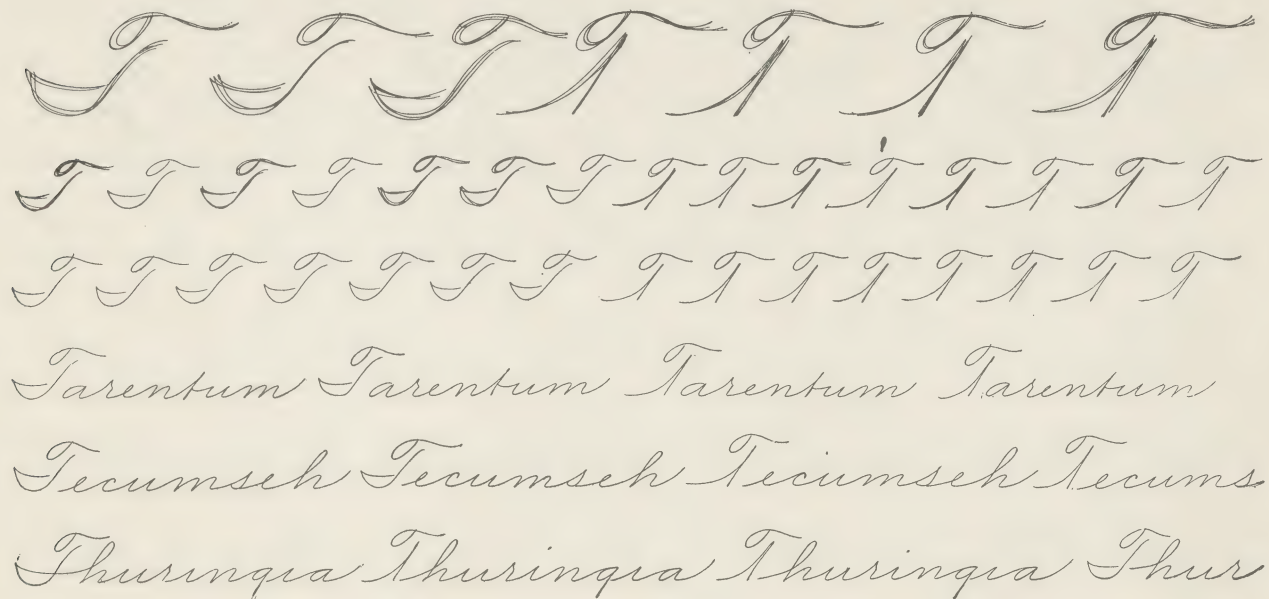 T T T T T T T
T T T T T T T T T T T T T T T
T T T T T T T T T T T T T T T
Tarentum Tarentum Tarentum Tarentum
Tecumseh Tecumseh Tecumseh Tecums
Thuringia Thuringia Thuringia Thur